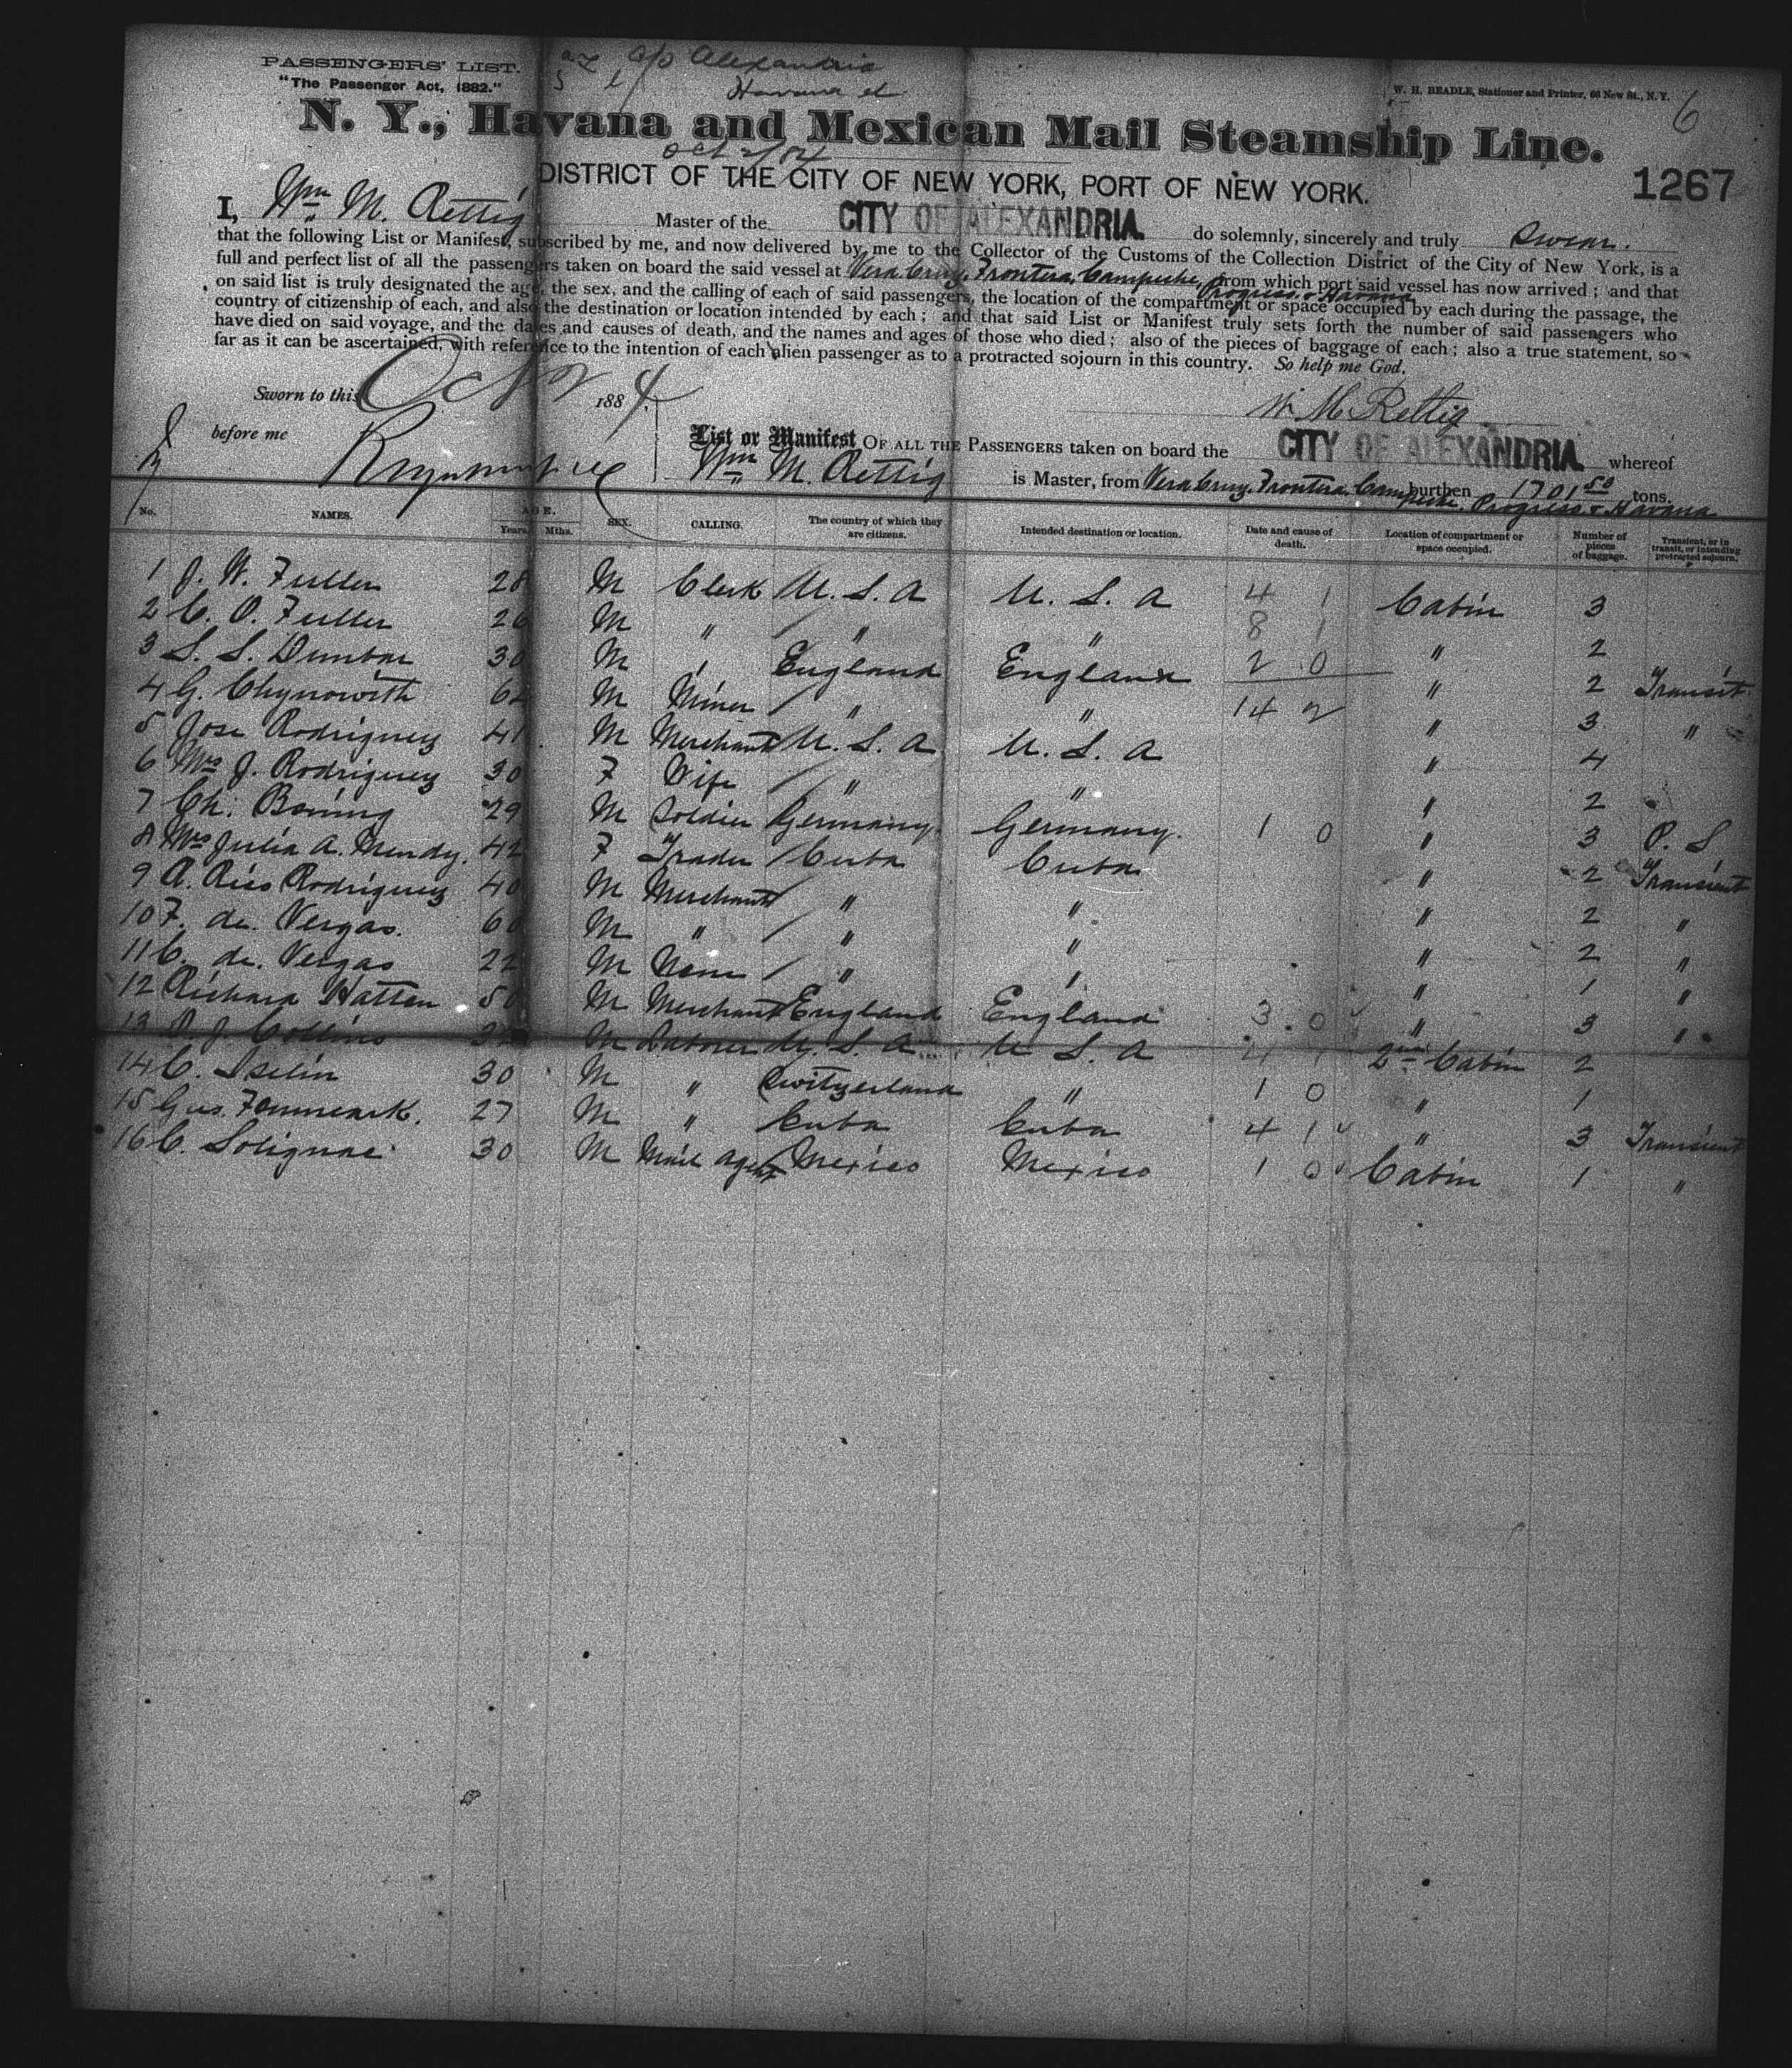 PASSENGERS' LIST.
"The Passenger Act, 1882."
c/o Alexandria
Havana et
W. H. BEADLE, Stationer and Printer, 66 New St., N. Y.
6
N. Y., Havana and Mexican Mail Steamship Line.
Oct 2/84
DISTRICT OF THE CITY OF NEW YORK, PORT OF NEW YORK.
1267
I, Wm. M. Rettig Master of the CITY OF ALEXANDRIA. do solemnly, sincerely and truly Swear.
that the following List or Manifest, subscribed by me, and now delivered by me to the Collector of the Customs of the Collection District of the City of New York, is a
full and perfect list of all the passengers taken on board the said vessel at Vera Cruz, Frontera, Campeche, Progreso & Havana from which port said vessel has now arrived; and that
on said list is truly designated the age, the sex, and the calling of each of said passengers, the location of the compartment or space occupied by each during the passage, the
country of citizenship of each, and also the destination or location intended by each; and that said List or Manifest truly sets forth the number of said passengers who
have died on said voyage, and the dates and causes of death, and the names and ages of those who died; also of the pieces of baggage of each; also a true statement, so
far as it can be ascertained, with reference to the intention of each alien passenger as to a protracted sojourn in this country. So help me God.
Sworn to this Oct 2 1884.
W M Rettig
before me
List or Manifest OF ALL THE PASSENGERS taken on board the CITY OF ALEXANDRIA. whereof
Wm. M. Rettig is Master, from Vera Cruz, Frontera, Campeche, Progreso & Havana burthen 1701 50 tons.
No. NAMES. AGE. Years. Mths. SEX. CALLING. The country of which they are citizens. Intended destination or location. Date and cause of death. Location of compartment or space occupied. Number of pieces of baggage. Transient, or in transit, or intending protracted sojourn.
1 J. W. Fuller 28 M Clerk U. S. A U. S. A 4 1 Cabin 3
2 C. O. Fuller 26 M " " " 8 1 " 2
3 S. S. Dunbar 30 M " England England 2 0 " 2 Transit
4 G. Chynowith 62 M Miner " " 14 2 " 3 "
5 Jose Rodriguez 41 M Merchant U. S. A U. S. A " 4
6 Mrs J. Rodriguez 30 F Wife " " " 2
7 Ch: Boning 29 M Soldier Germany. Germany. 1 0 " 3 P. S
8 Mrs Julia A. Mendy. 42 F Trader Cuba Cuba " 2 Transient
9 A. Rios Rodriguez 40 M Merchant " " " 2 "
10 F. de. Vergas. 60 M " " " " 2 "
11 C. de. Vergas 22 M None " " " 1 "
12 Richard Hatten 50 M Merchant England England 3 0 " 3 "
13 J. Collins 32 M Laborer U. S. A U S. A 4 1 2nd Cabin 2
14 C. Iselin 30 M " Switzerland " 1 0 " 1
15 Gus. 27 M " Cuba Cuba 4 1 " 3 Transient
16 C. Solignac 30 M Mail Agent Mexico Mexico 1 0 Cabin 1 "